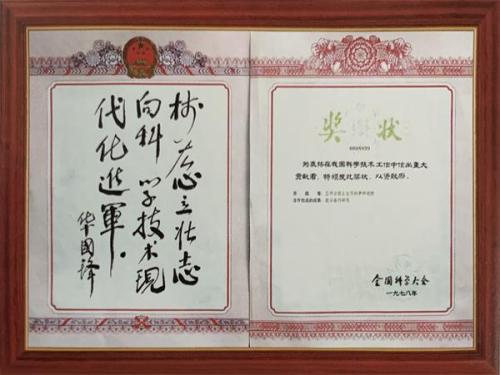 树雄心立壮志
向科学技术现
代化進軍。
华國锋
奖状
为表扬在我国科学技术工作中作出重大
贡献者,特颁发此奖状,以资鼓励。
全国科学大会
一九七八年